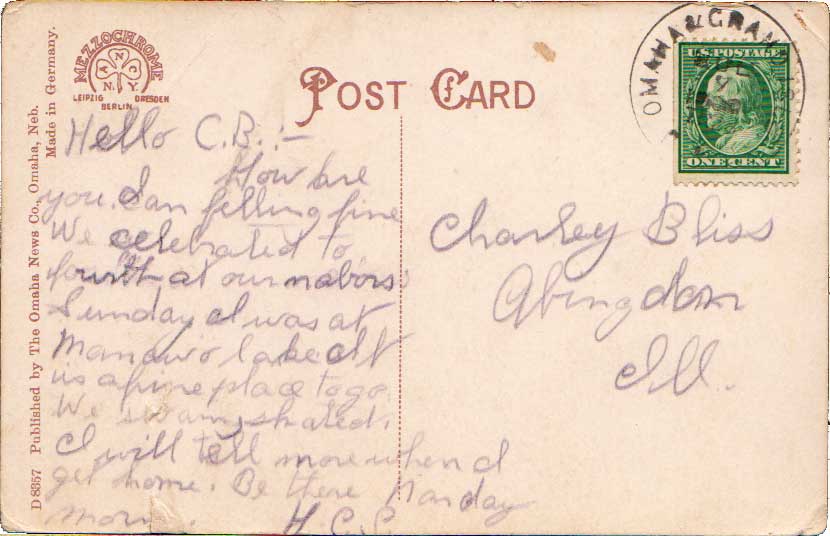 MEZZOCHROME
A N C
N.Y.
LEIPZIG DRESDEN
BERLIN
POST CARD
OMAHA & GRAN
U.S. POSTAGE
ONE CENT
Hello C.B.:-
How are
you. I am felling fine
We celebrated to
fourth at our nabors
Sunday I was at
Manawo lake It
is a fine place to go.
We swam, skated.
I will tell more when I
get home. Be there Monday
morn. H.C.S.
Charley Bliss
Abingdon
Ill.
D 8357 Published by The Omaha News Co., Omaha, Neb.
Made in Germany.